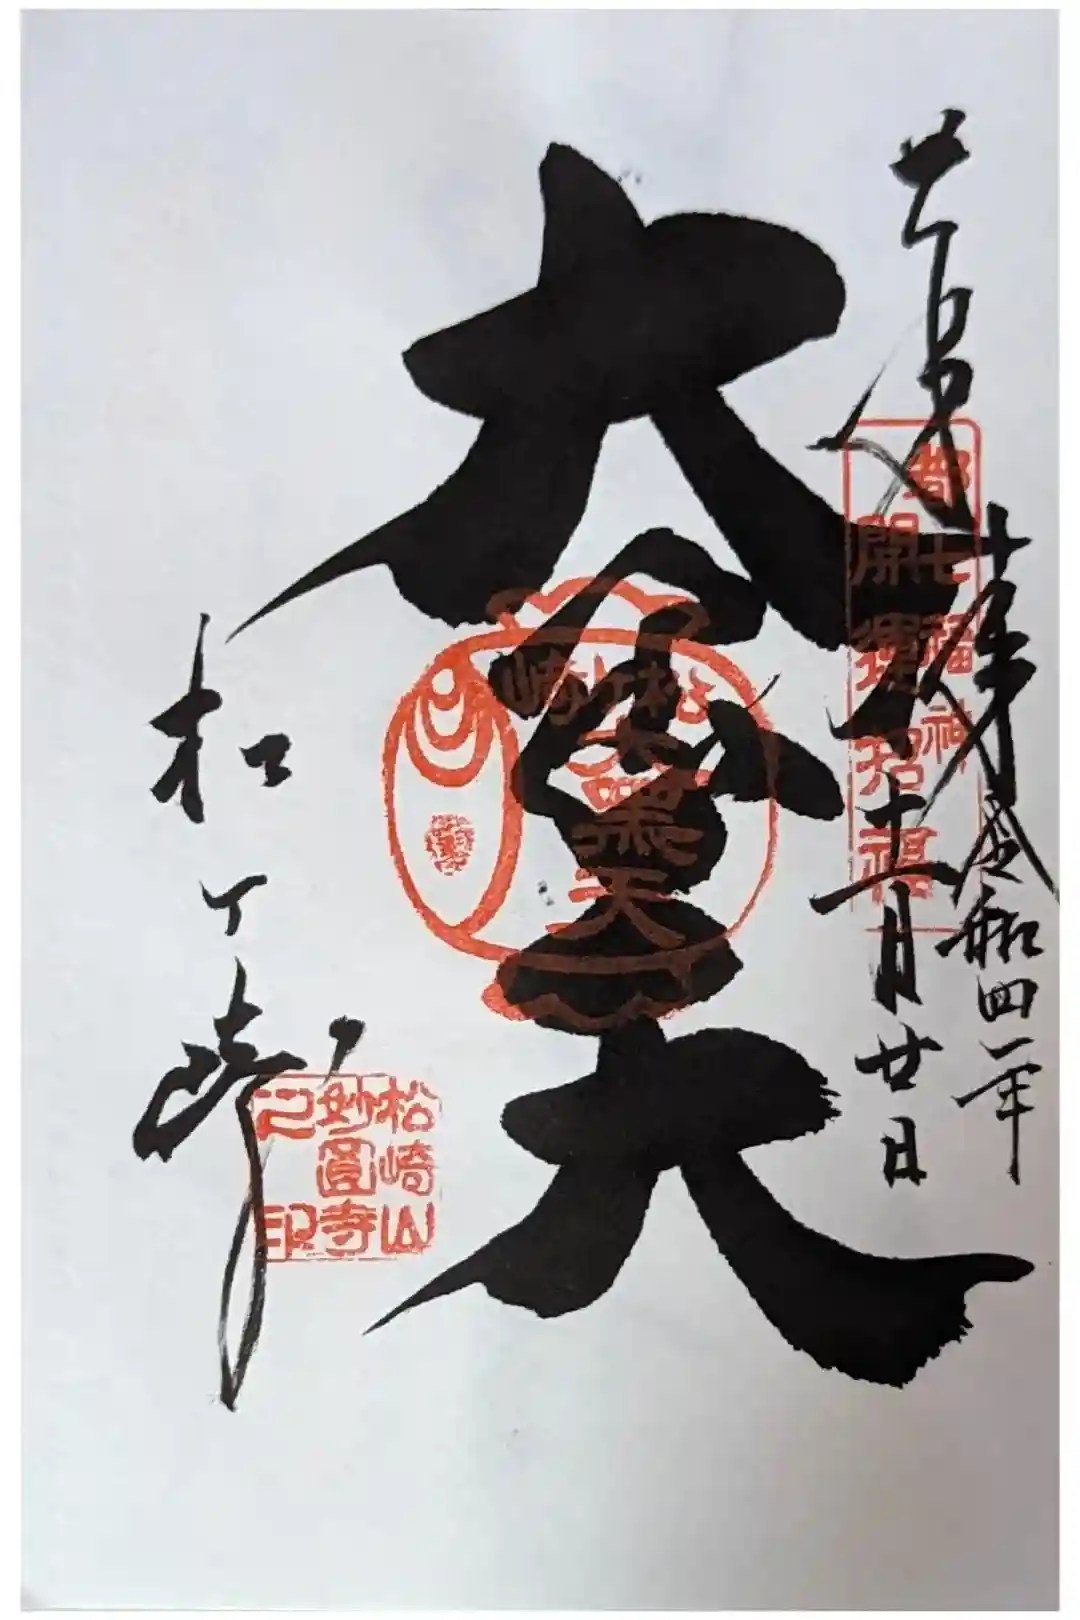 令和四年
月廿日
都七福神
開運招福
大黒天
松ヶ崎
大黒天
松ヶ崎
松崎山
妙圓寺
之印